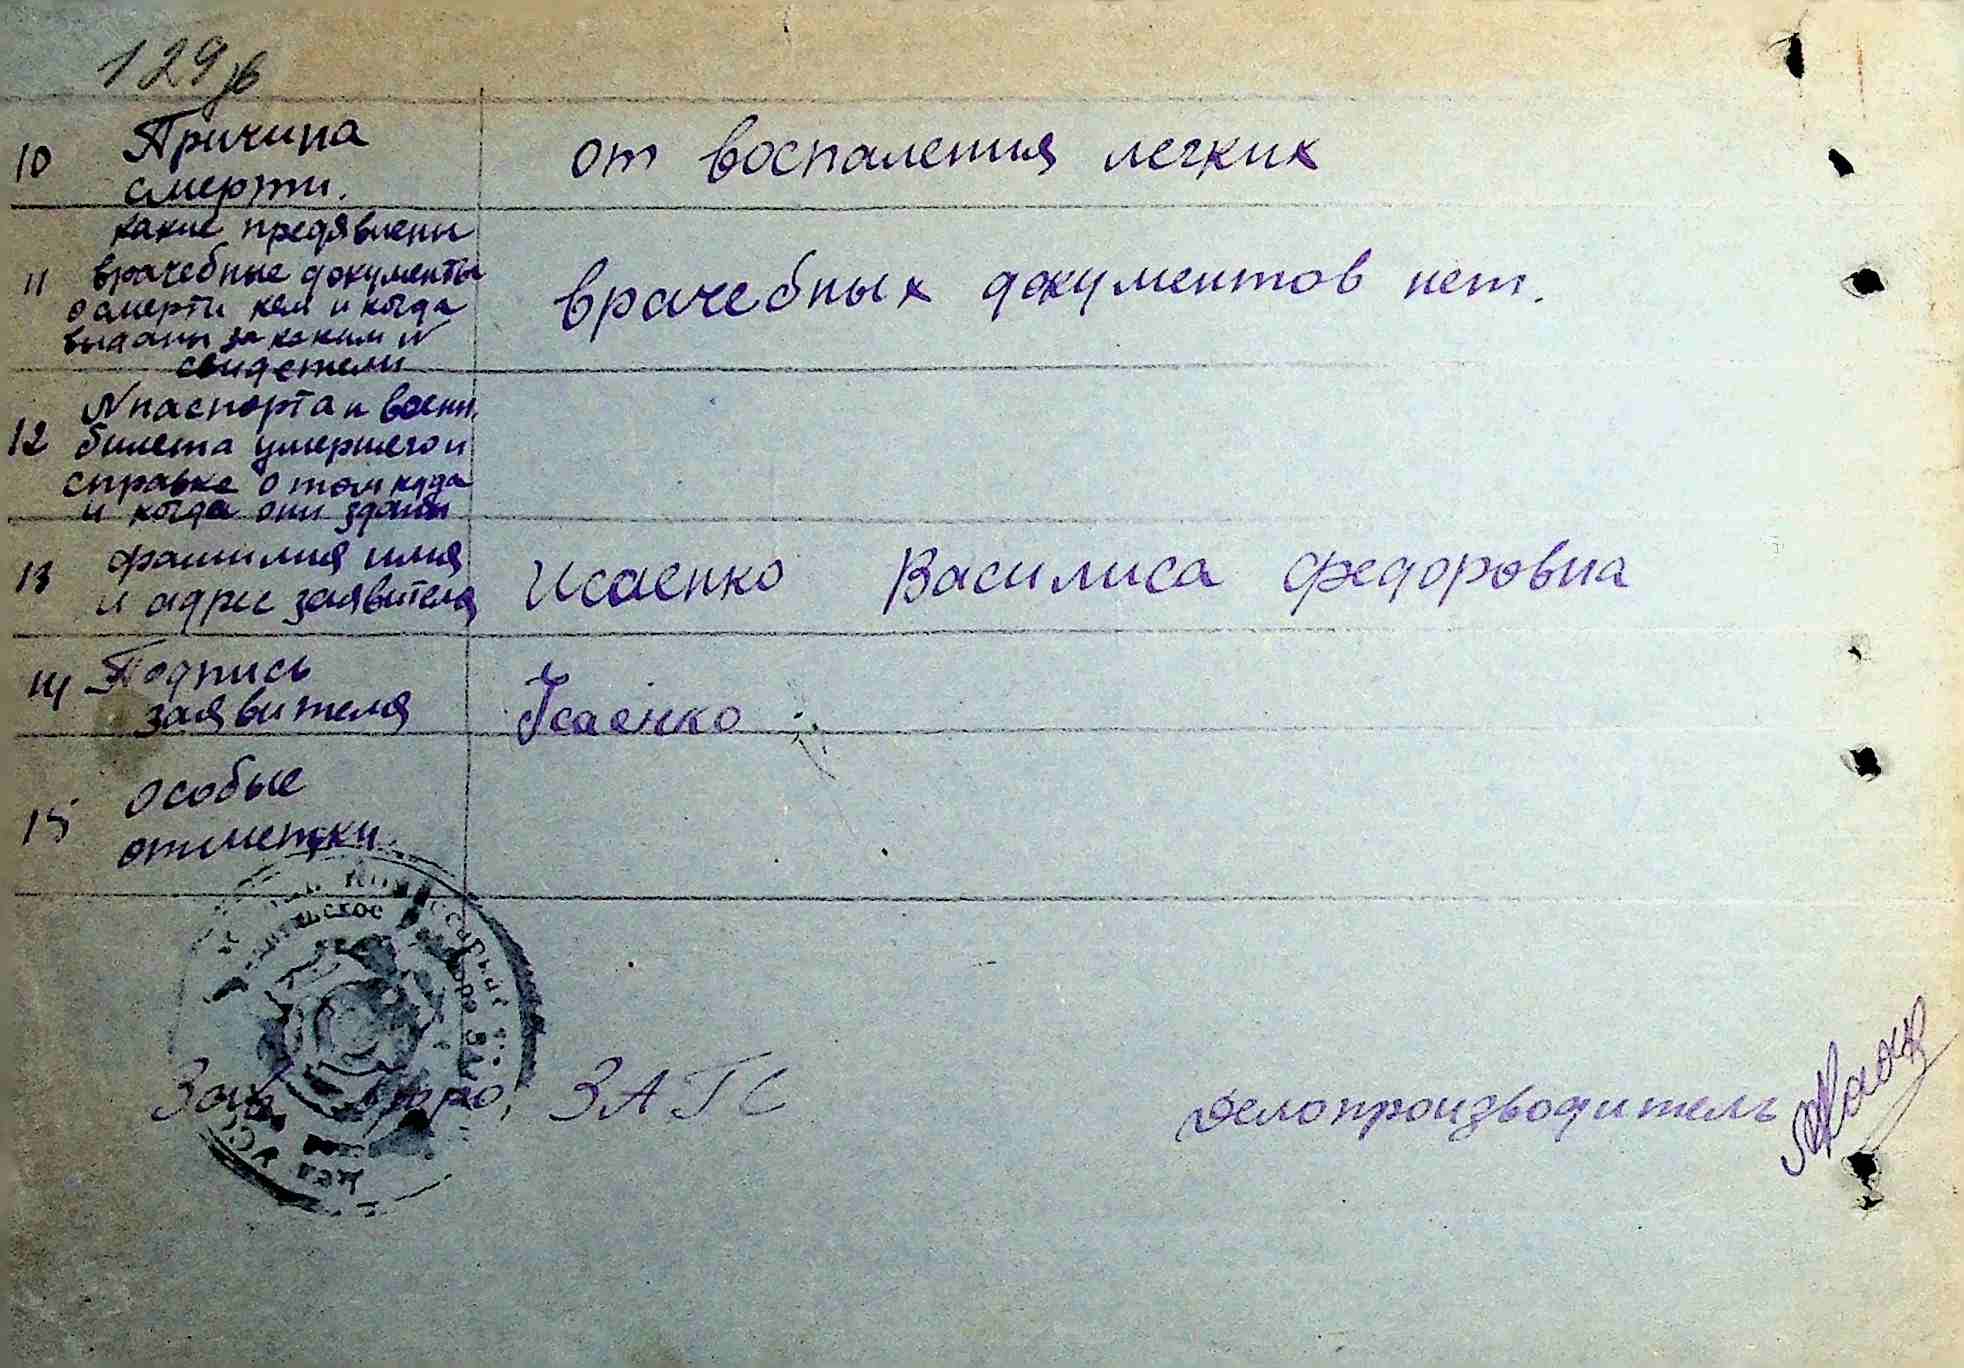 129 зв
10 Причина
смерти.
от воспаления легких
какие предявлени
11 врачебные документы
о смерти кем и когда
выданы за каким N
свидетели
врачебных документов нет.
N паспорта и воен.
12 билета умершего и
справке о том куда
и когда они зданы
13 фамилия имя
и адрес заявителя
Исаенко Василиса Федоровна
14 Подпись
заявителя
Исаенко
15 особые
отметки
Комиссариат
ское
бюро ЗАГС
УССР
Зав. бюро, ЗАГС
Делопроизводитель